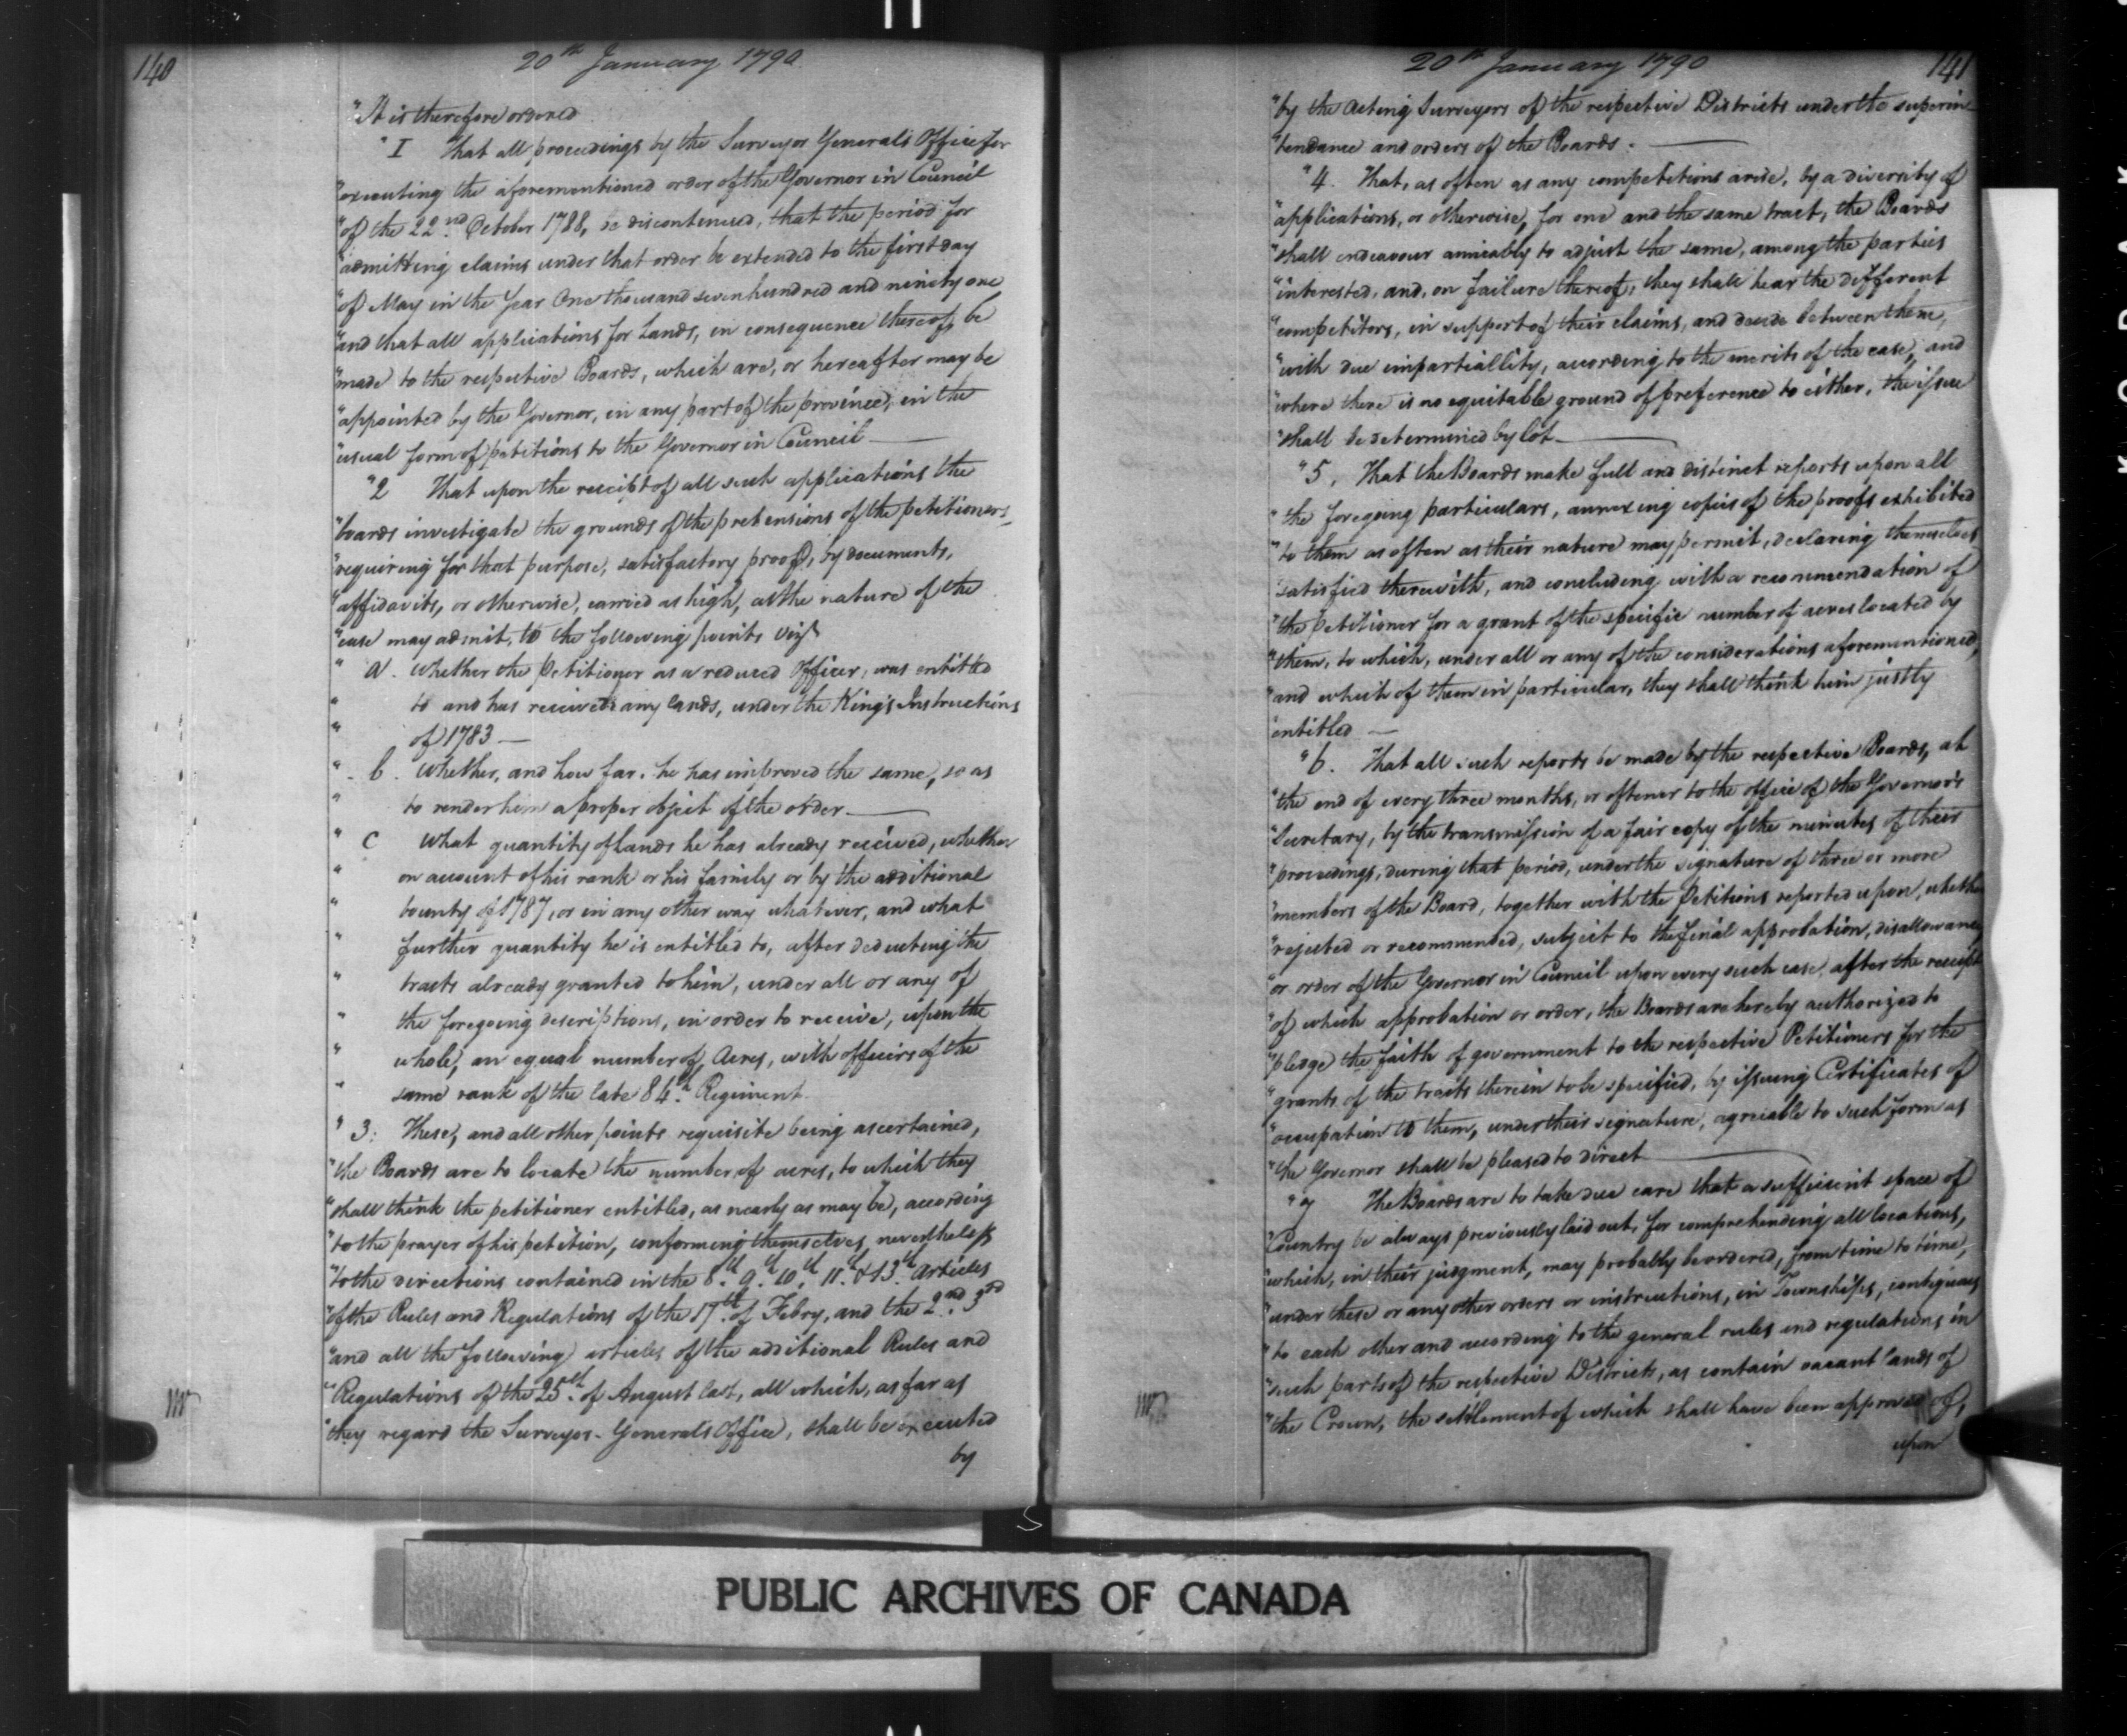 140
20th January 1790
"It is therefore ordered
"I That all proceedings by the Surveyor Generals Office for
"executing the aforementioned order of the Governor in Council
"of the 22nd October 1788, be discontinued, that the period for
"admitting claims under that order be extended to the first day
"of May in the Year One thousand seven hundred and ninety one
"and that all applications for Lands, in consequence thereof, be
"made to the respective Boards, which are, or hereafter may be
"appointed by the Governor, in any part of the province, in the
"usual form of petitions to the Governor in Council —
"2 That upon the receipt of all such applications the
"boards investigate the grounds of the pretensions of the petitioners,
"requiring for that purpose, satisfactory proof, by documents,
"affidavits, or otherwise, carried as high, as the nature of the
"case may admit, to the following points vizt
" a. Whether the Petitioner as a reduced Officer, was entitled
" to and has received any lands, under the Kings Instructions
" of 1783 —
" b. Whether, and how far, he has improved the same, so as
" to render him a proper object of the order —
" c What quantity of Lands he has already received, whether
" on account of his rank or his family or by the additional
" bounty of 1787, or in any other way whatever, and what
" further quantity he is entitled to, after deducting the
" tracts already granted to him, under all or any of
" the foregoing descriptions, in order to receive, upon the
" whole, an equal number of Acres, with officers of the
" same rank of the late 84th Regiment.
" 3: These, and all other points requisite being ascertained,
"the Boards are to locate the number of acres, to which they
"shall think the petitioner entitled, as nearly as may be, according
"to the prayer of his petition, conforming themselves, nevertheless
"to the directions contained in the 8th 9th 10th 11th & 13th Articles
"of the Rules and Regulations of the 17th of Febry, and the 2nd 3rd
"and all the following articles of the additional Rules and
"Regulations of the 25th of August last, all which, as far as
"they regard the Surveyor-Generals Office, shall be executed
by
20th January 1790
141
"by the Acting Surveyors of the respective Districts under the superin
"tendance and orders of the Boards. —
"4. That, as often as any competitions arise, by a diversity of
"applications, or otherwise, for one and the same tract, the Boards
"shall endeavour amicably to adjust the same, among the parties
"interested, and, on failure thereof, they shall hear the different
"competitors, in support of their claims, and decide between them,
"with due impartiallity, according to the merits of the case, and
"where there is no equitable ground of preference to either, the issue
"shall be determined by lot —
"5. That the Boards make full and distinct reports upon all
"the foregoing particulars, annexing copies of the proofs exhibited
"to them as often as their nature may permit, declaring themselves
"satisfied therewith, and concluding with a recommendation of
"the Petitioner for a grant of the specific number of acres located by
"them, to which, under all or any of the considerations aforementioned,
"and which of them in particular, they shall think him justly
"entitled —
"6. That all such reports be made by the respective Boards, at
"the end of every three months, or oftener to the office of the Governor's
"Secretary, by the transmission of a fair copy of the minutes of their
"proceedings, during that period, under the signature of three or more
"members of the Board, together with the Petitions reported upon, whether
"rejected or recommended, subject to the final approbation, disallowance
"or order of the Governor in Council upon every such case, after the receipt
"of which approbation or order, the Boards are hereby authorized to
"pledge the faith of government to the respective Petitioners for the
"grants of the tracts therein to be specified, by issuing Certificates of
"occupation to them, under their signature, agreable to such form as
"the Governor shall be pleased to direct —
"7 The Boards are to take due care that a sufficient space of
"Country be always previously laid out, for comprehending all locations,
"which, in their judgment, may probably be ordered, from time to time,
"under these or any other orders or instructions, in Townships, contiguous
"to each other and according to the general rules and regulations in
"such parts of the respective Districts, as contain vacant lands of
"the Crown, the settlement of which shall have been approved of,
upon
PUBLIC ARCHIVES OF CANADA